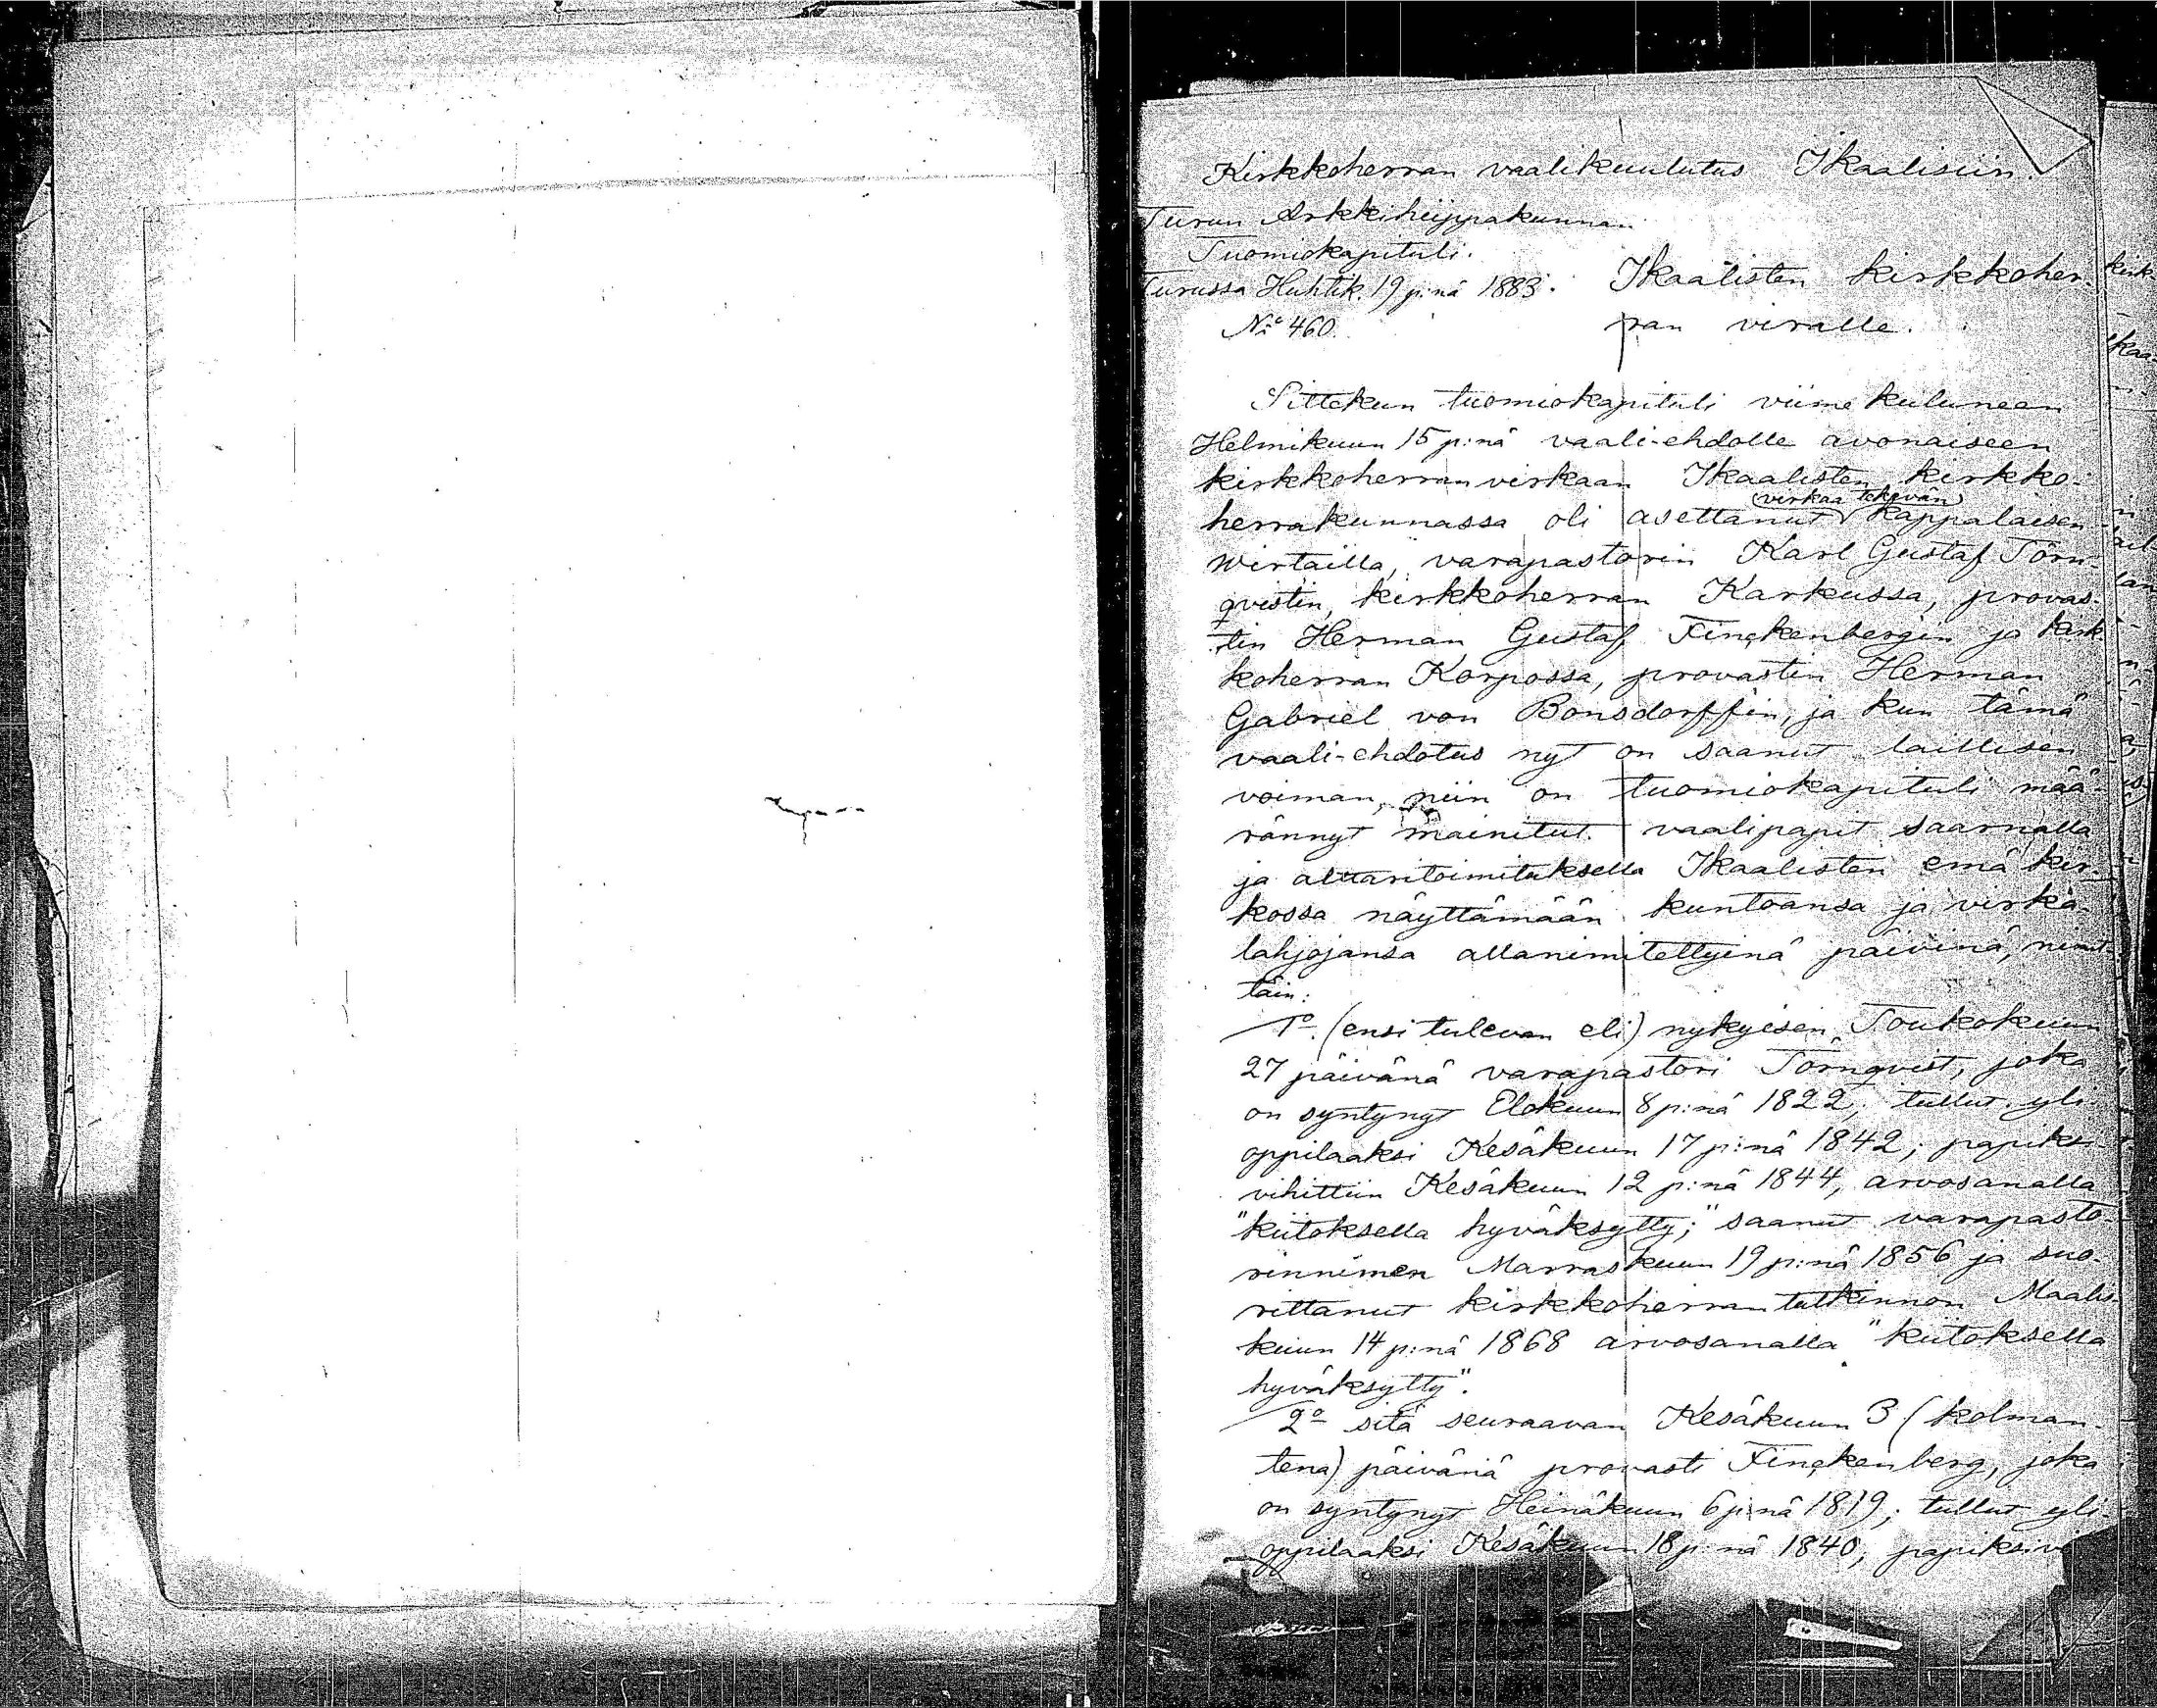 Kirkkoherran vaalikuulutus Ikaalisiin.
Turun Arkkihiippakunnan
Tuomiokapituli.
Turussa Huhtik. 19 p:nä 1883.
No 460.
Ikaalisten kirkkoher-
ran viralle.
Sittekun tuomiokapituli viime kuluneen
Helmikuun 15 p:nä vaali-ehdolle avonaiseen
kirkkoherranvirkaan Ikaalisten kirkko-
(virkaa tekevän)
herrakunnassa oli asettanut kappalaisen
Wirtailla, varapastorin Karl Gustaf Törn-
qvistin, kirkkoherran Karkussa, provas-
tin Herman Gustaf Finckenbergin ja kirk-
koherran Korpossa, provastin Herman
Gabriel von Bonsdorffin, ja kun tämä
vaali-ehdotus nyt on saanut laillisen
voiman, niin on tuomiokapituli mää-
rännyt mainitut vaalipapit saarnalla
ja alttaritoimituksella Ikaalisten emäkir-
kossa näyttämään kuntoansa ja virka-
lahjojansa allanimitettyinä päivinä, nimit-
täin:
1o. (ensi tulevan eli) nykyisen Toukokuun
27 päivänä varapastori Törnqvist, joka
on syntynyt Elokuun 8 p:nä 1822; tullut yli-
oppilaaksi Kesäkuun 17 p:nä 1842; papiksi
vihittiin Kesäkuun 12 p:nä 1844, arvosanalla
"kiitoksella hyväksytty;" saanut varapasto-
rinnimen Marraskuun 19 p:nä 1856 ja suo-
rittanut kirkkoherrantutkinnon Maalis-
kuun 14 p:nä 1868 arvosanalla "kiitoksella
hyväksytty".
2o sitä seuraavan Kesäkuun 3 (kolman-
tena) päivänä provasti Finckenberg, joka
on syntynyt Heinäkuun 6 p:nä 1819; tullut yli-
oppilaaksi Kesäkuun 18 p:nä 1840; papiksi vi